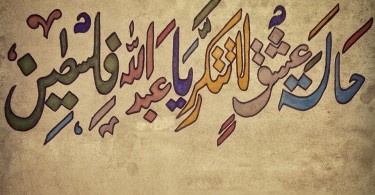 حالة عشق لا تتكرر يا عبد الله فلسطين